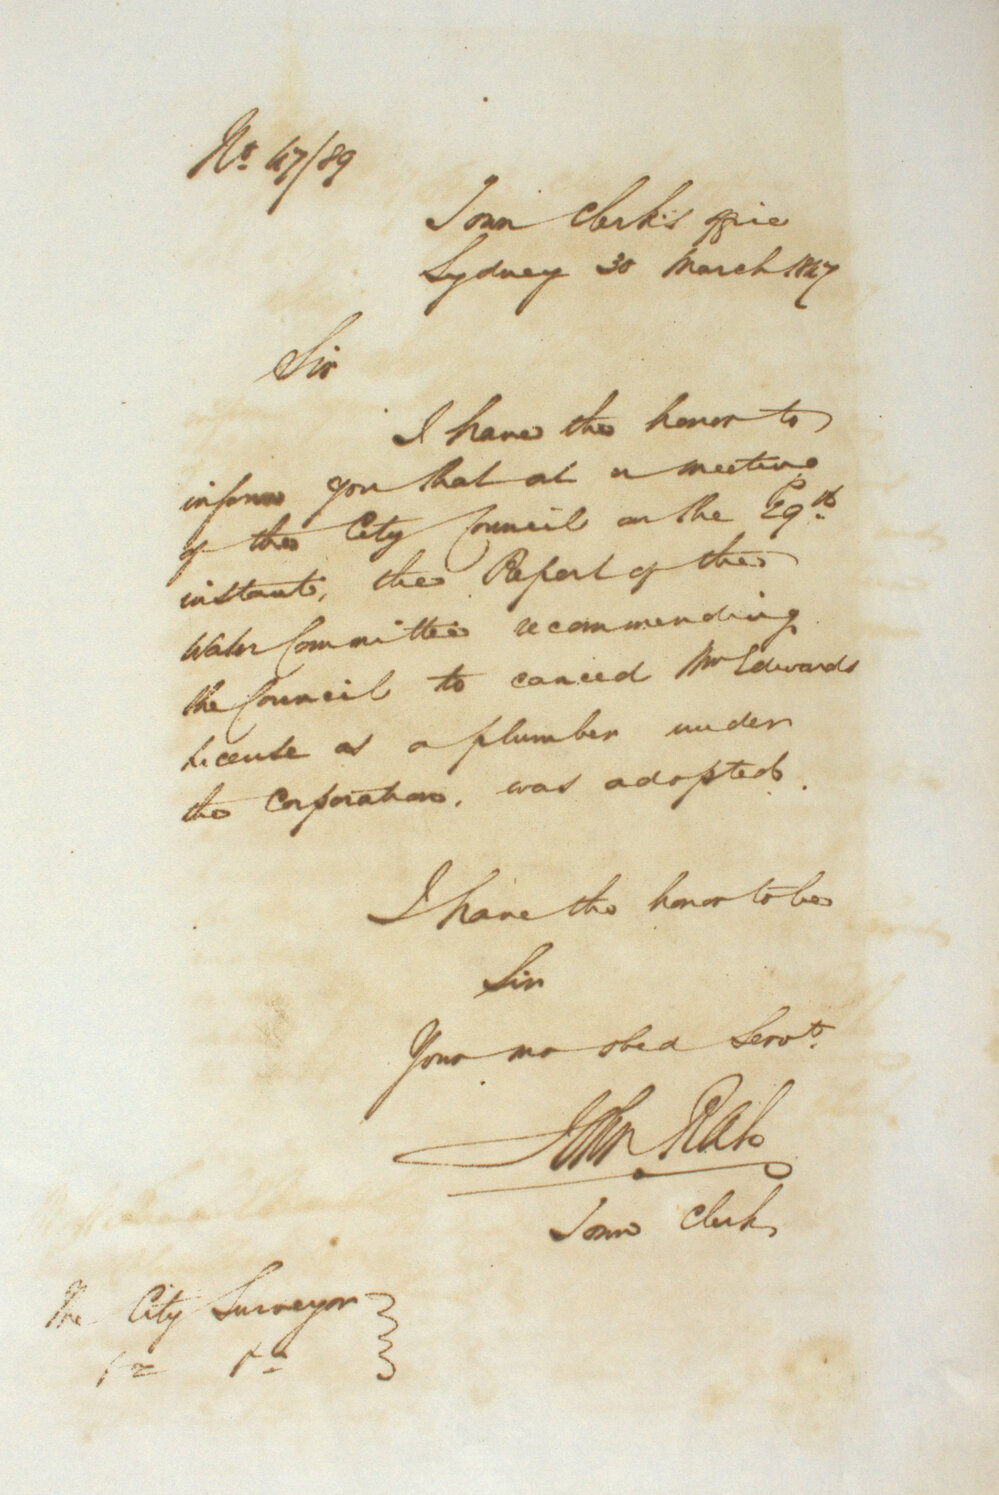 No. 47/89
Town Clerk's office
Sydney 30 March 1847
Sir
I have the honor to
inform you that at a meeting
of the City Council on the 29th
instant, the Report of the
Water Committee recommending
the Council to cancel Mr Edwards
license as a plumber under
the Corporation, was adopted.
I have the honor to be
Sir
Your mo obed Servt.
John Rae
Town Clerk
The City Surveyor